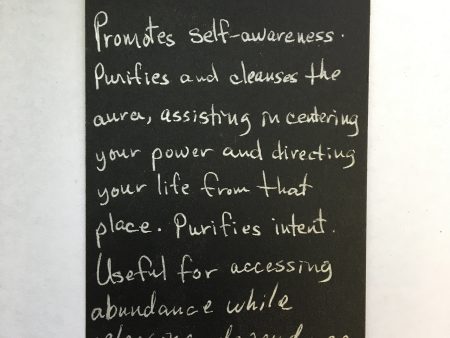 Promotes self-awareness.
Purifies and cleanses the
aura, assisting in centering
your power and directing
your life from that
place. Purifies intent.
Useful for accessing
abundance while